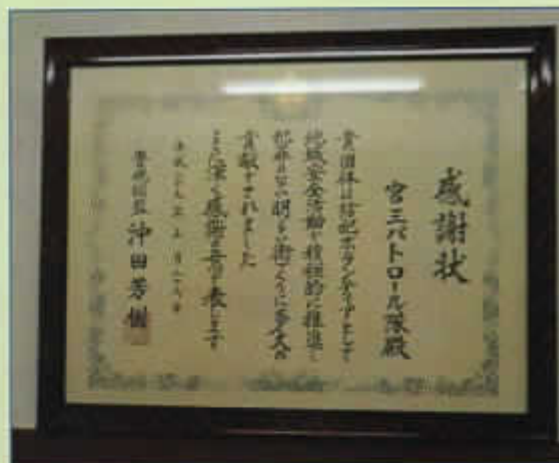 感謝状
宮三パトロール隊殿
貴団体は防犯ボランティアとして
地域安全活動を積極的に推進し
犯罪のない明るい街づくりに多大な
貢献をされました
よって深く感謝の意を表します
平成二十九年 月 日
警視総監 沖田芳樹